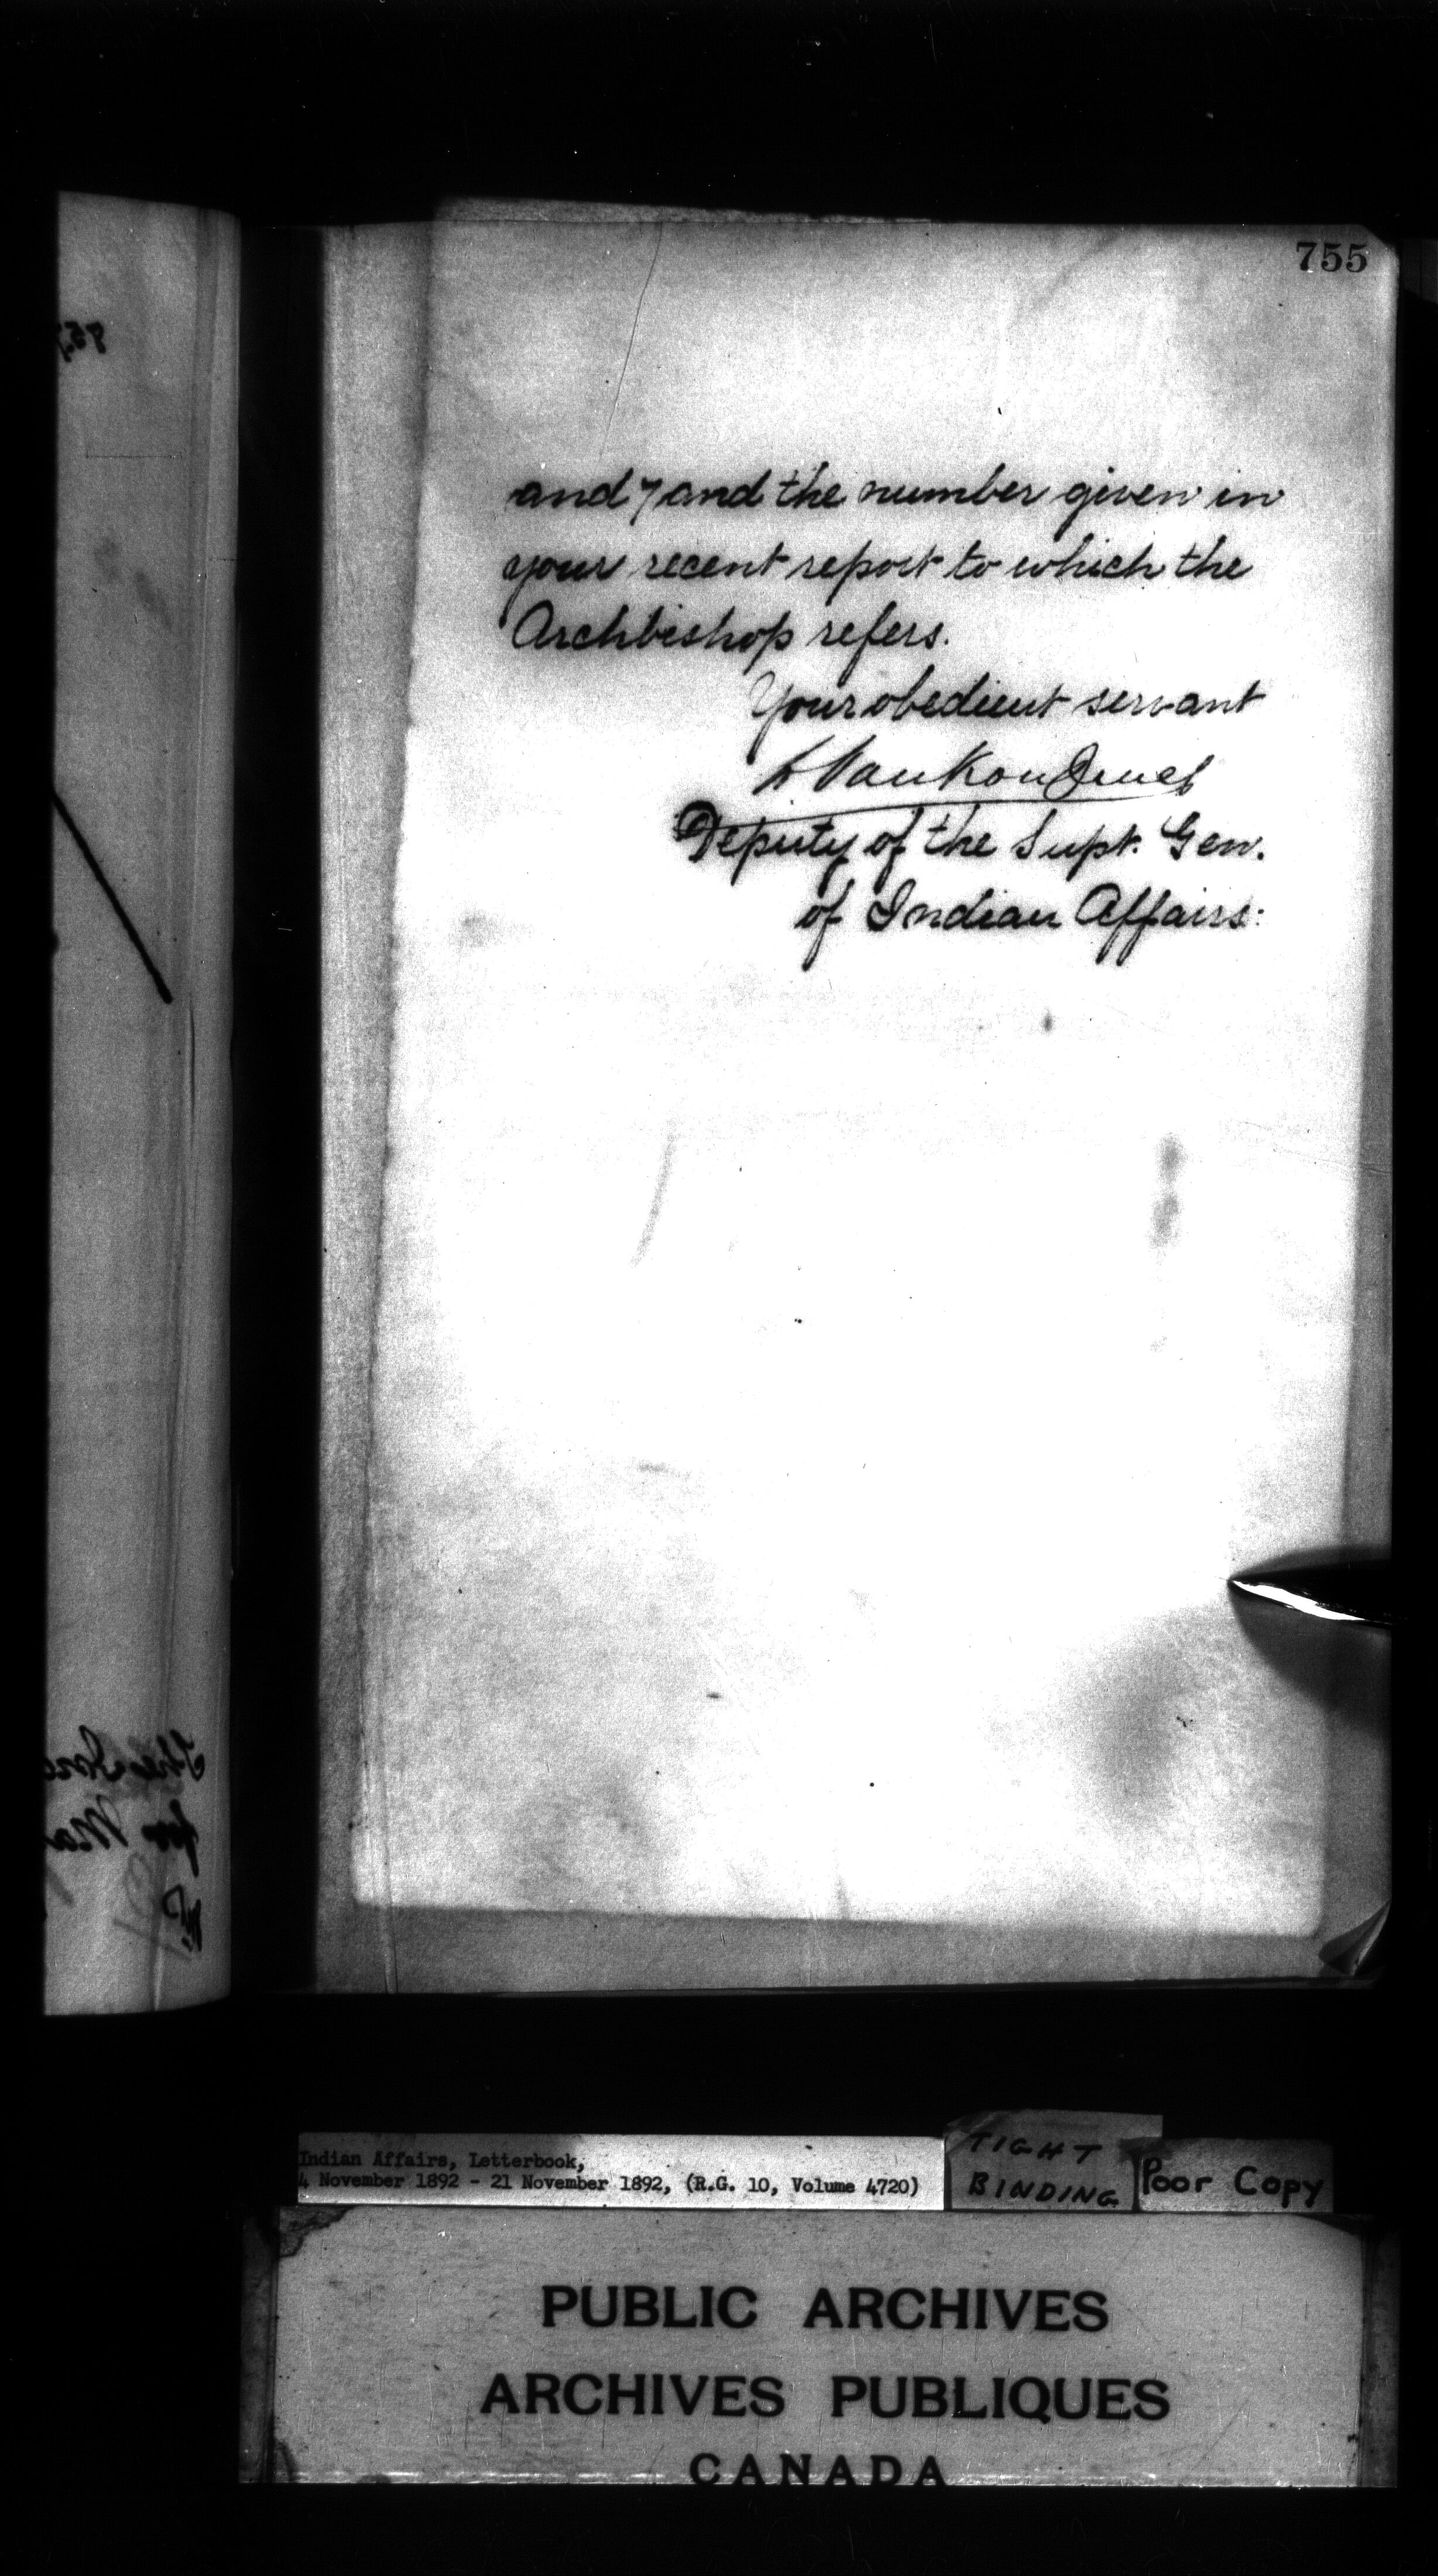 755
and 7 and the number given in
your recent report to which the
Archbishop refers.
Your obedient servant
L VanKoughnet
Deputy of the Supt. Gen.
of Indian Affairs.
Indian Affairs, Letterbook,
4 November 1892 - 21 November 1892, (R.G. 10, Volume 4720)
TIGHT
BINDING
Poor Copy
PUBLIC ARCHIVES
ARCHIVES PUBLIQUES
CANADA